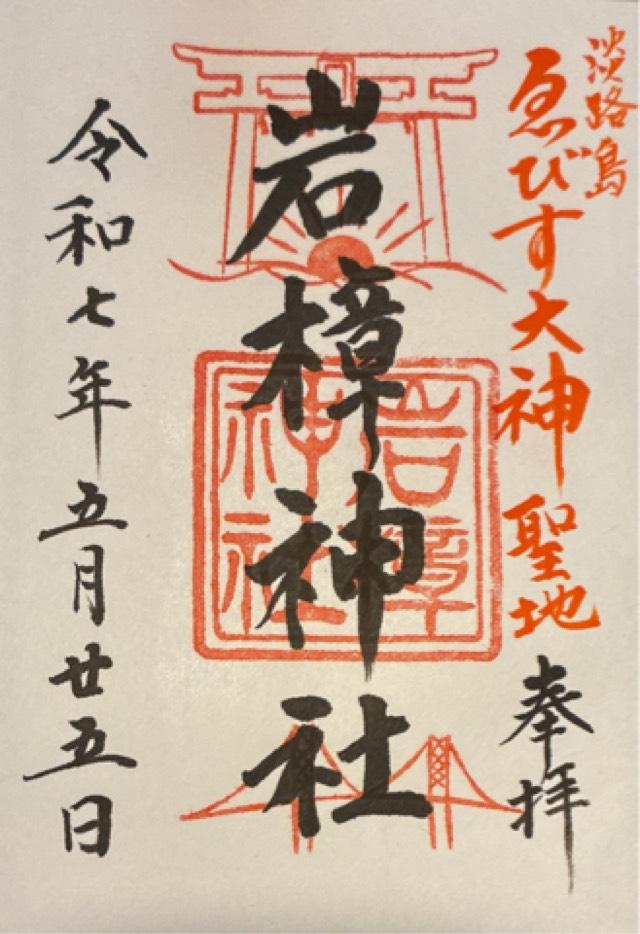 淡路島
ゑびす大神 聖地
奉拝
岩樟神社
岩樟神社
令和七年五月廿五日